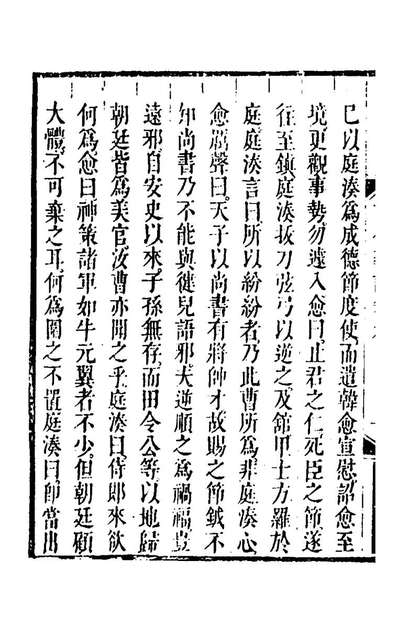 已以庭湊爲成德節度使而遣韓愈宣慰詔愈至
境更觀事勢勿遽入愈曰止君之仁死臣之節遂
往至鎮庭湊拔刀弦弓以逆之及館甲士方羅於
庭庭湊言曰所以紛紛者乃此曹所爲非庭湊心
愈厲聲曰天子以尚書有將帥才故賜之節鉞不
知尚書乃不能與健兒語邪夫逆順之爲禍福豈
遠邪自安史以來子孫無存而田令公等以地歸
朝廷皆爲美官汝曹亦聞之乎庭湊曰侍郎來欲
何爲愈曰神策諸軍如牛元翼者不少但朝廷顧
大體不可棄之耳何爲圍之不置庭湊曰卽當出